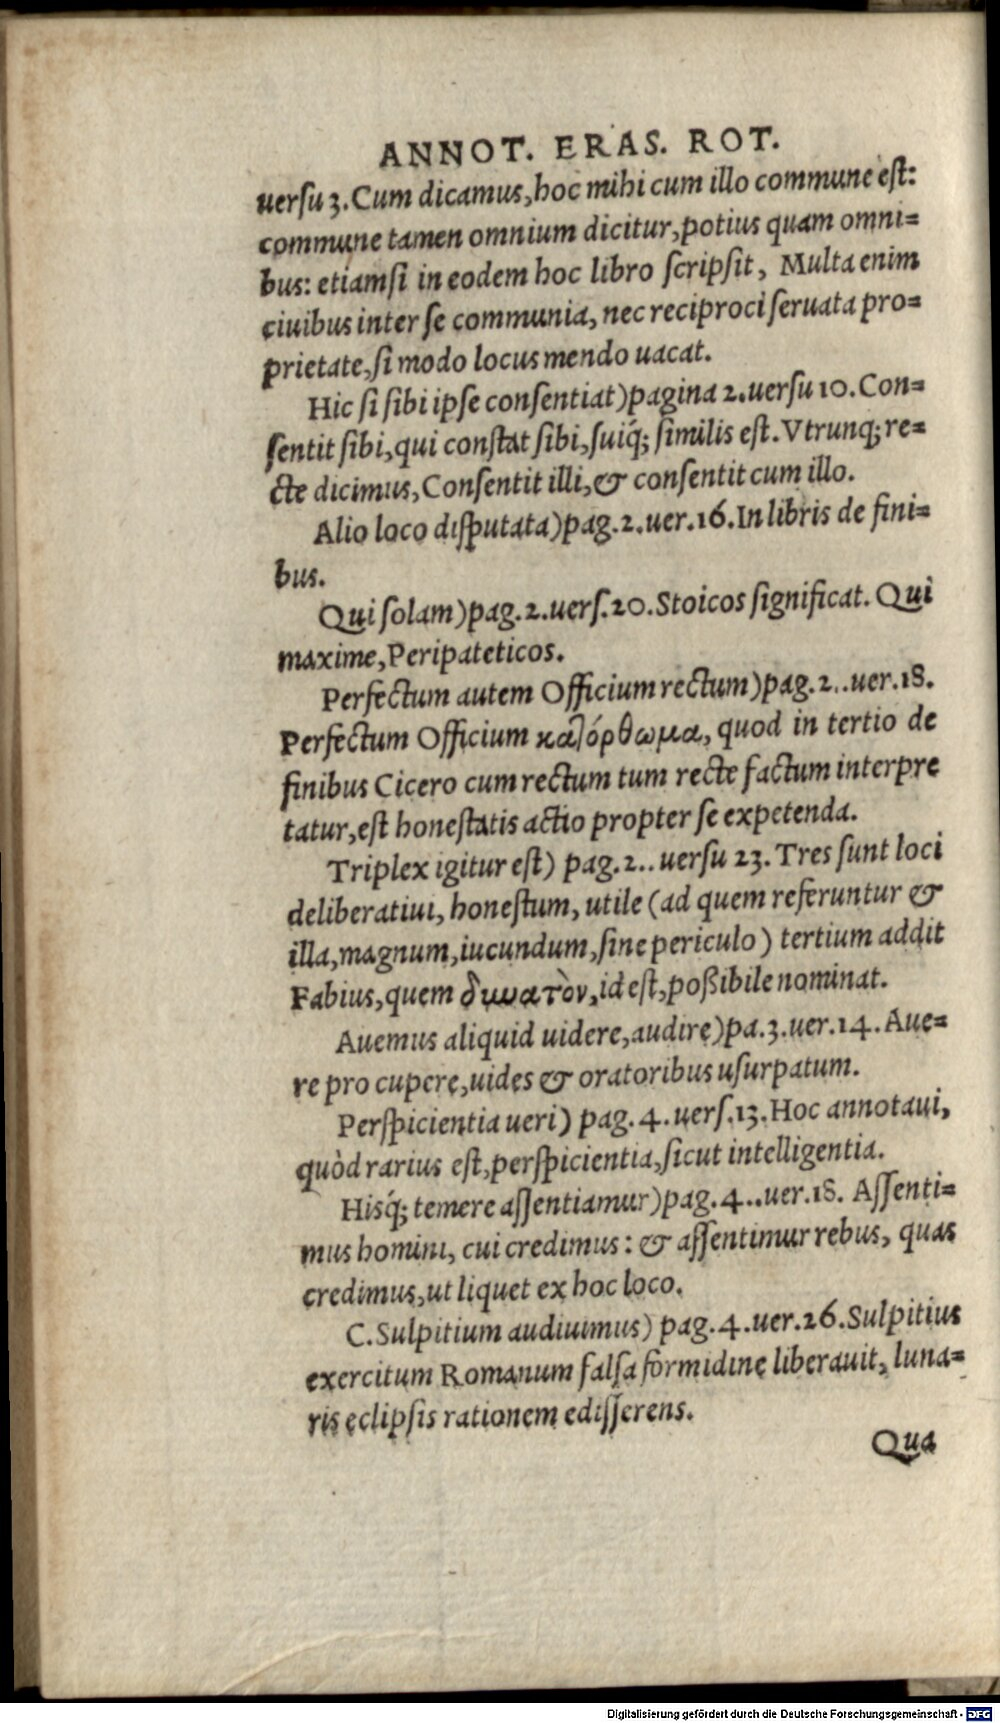 ANNOT. ERAS. ROT.
uerſu 3. Cum dicamus, hoc mihi cum illo commune eſt:
commune tamen omnium dicitur, potius quam omni=
bus: etiamſi in eodem hoc libro ſcripſit, Multa enim
ciuibus inter ſe communia, nec reciproci ſeruata pro=
prietate, ſi modo locus mendo uacat.
Hic ſi ſibi ipſe conſentiat) pagina 2. uerſu 10. Con=
ſentit ſibi, qui conſtat ſibi, ſuiq́; ſimilis eſt. Vtrunq; re=
cte dicimus, Conſentit illi, & conſentit cum illo.
Alio loco diſputata) pag. 2. uer. 16. In libris de fini=
bus.
Qui ſolam) pag. 2. uerſ. 20. Stoicos ſignificat. Qui
maxime, Peripateticos.
Perfectum autem Officium rectum) pag. 2.. uer. 18.
Perfectum Officium κατόρθωμα, quod in tertio de
finibus Cicero cum rectum tum recte factum interpre
tatur, eſt honeſtatis actio propter ſe expetenda.
Triplex igitur eſt) pag. 2.. uerſu 23. Tres ſunt loci
deliberatiui, honeſtum, utile (ad quem referuntur &
illa, magnum, iucundum, ſine periculo) tertium addit
Fabius, quem δυνατὸν, id eſt, poßibile nominat.
Auemus aliquid uidere, audire) pa. 3. uer. 14. Aue=
re pro cupere, uides & oratoribus uſurpatum.
Perſpicientia ueri) pag. 4. uerſ. 13. Hoc annotaui,
quòd rarius eſt, perſpicientia, ſicut intelligentia.
Hisq́; temere aſſentiamur) pag. 4.. uer. 18. Aſſenti=
mus homini, cui credimus: & aſſentimur rebus, quas
credimus, ut liquet ex hoc loco.
C. Sulpitium audiuimus) pag. 4. uer. 26. Sulpitius
exercitum Romanum falſa formidine liberauit, luna=
ris eclipſis rationem ediſſerens.
Qua
Digitalisierung gefördert durch die Deutsche Forschungsgemeinschaft - DFG